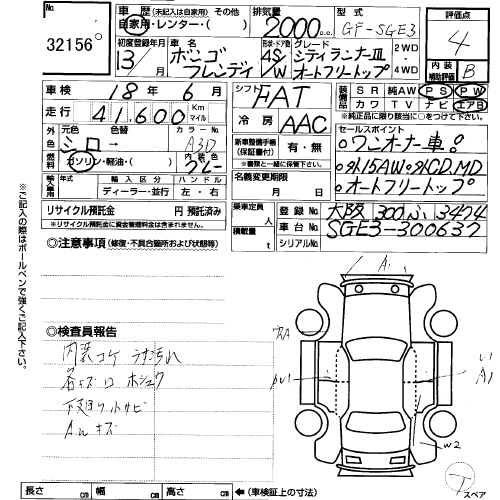 No.
32156
車歴 (未記入は自家用) その他
自家用・レンター・( )
排気量
2000 c.c.
型式
GF-SGE3
評価点
4
初度登録年月
13/ 月
車名
ボンゴ
フレンディ
形状・ドア数
4S/W
グレード
シティランナーIII
オートフリートップ
2WD
4WD
内装
補助評価
B
車検 18年 6月
走行 41,600 Km
マイル
シフト
FAT
冷房
AAC
装備品
SR 純AW PS PW
カワ TV ナビ エアB
※純正品に限り該当に○をつけて下さい。
外色
元色 色替
シロ
カラーNo.
A3D
燃料
ガソリン・軽油・( )
内装色
グレー
新車整備手帳
(保証書付)
有・無
※書類と一緒に保管して下さい。
セールスポイント
ワンオーナー車
外15AW 外CD,MD
オートフリートップ
輸入車
年式 輸入区分 ハンドル
ディーラー・並行 左・右
名義変更期限
月 日
リサイクル預託金 円 預託済み
※リサイクル預託金に資金管理料金は含まれません。
乗車定員
人
積載量
t
登録No.
大阪 300 ふ 3474
車台No.
SGE3-300637
シリアルNo.
◎注意事項(修復・不具合箇所および状態等)
※ご記入の際はボールペンで強くご記入下さい。
◎検査員報告
内装コゲ
キズ
キズ
A1
A1
W2
スペア
長さ cm 幅 cm 高さ cm ←(車検証上の寸法)